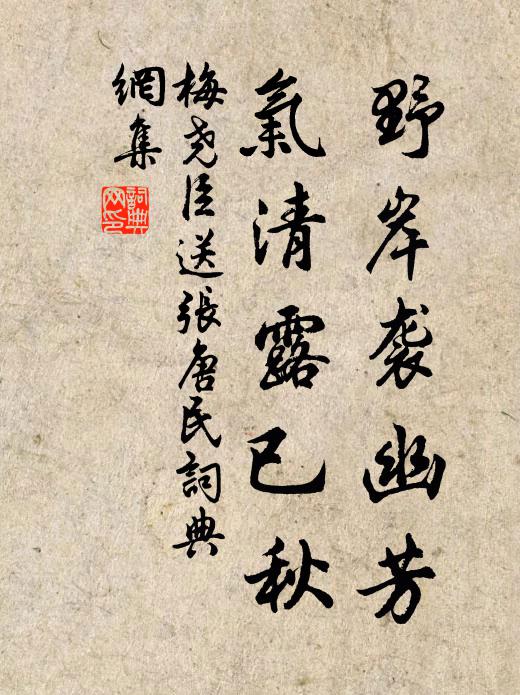 野岸袭幽芳
氣清露已秋
梅尧臣送張唐民詞典
網集
詞典
网印